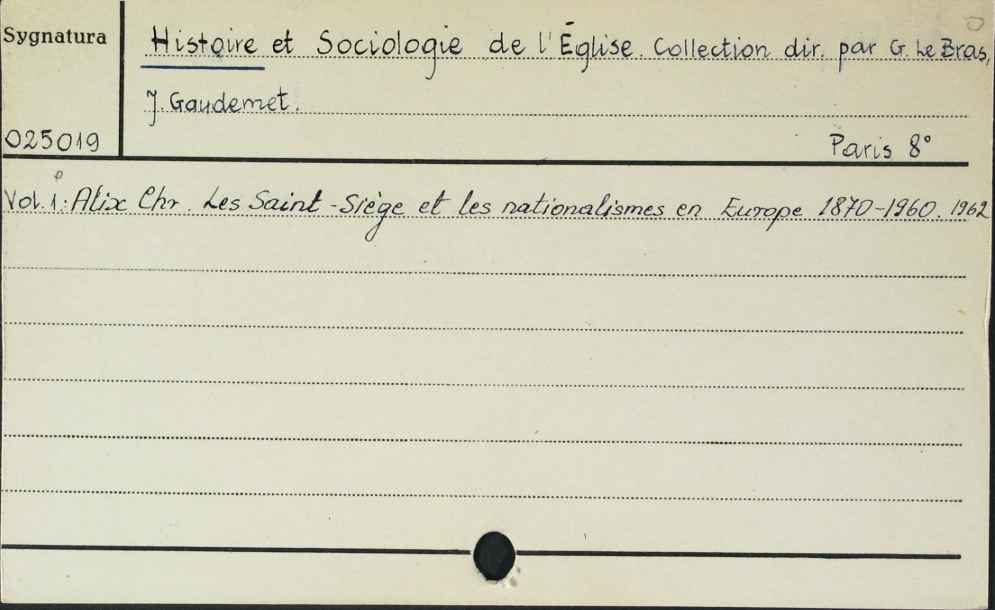 Sygnatura
Histoire et Sociologie de l'Église. Collection dir. par G. Le Bras,
J. Gaudemet.
025019
Paris 8°
Vol. 1: Alix Chr. Les Saint-Siège et les nationalismes en Europe 1870-1960. 1962